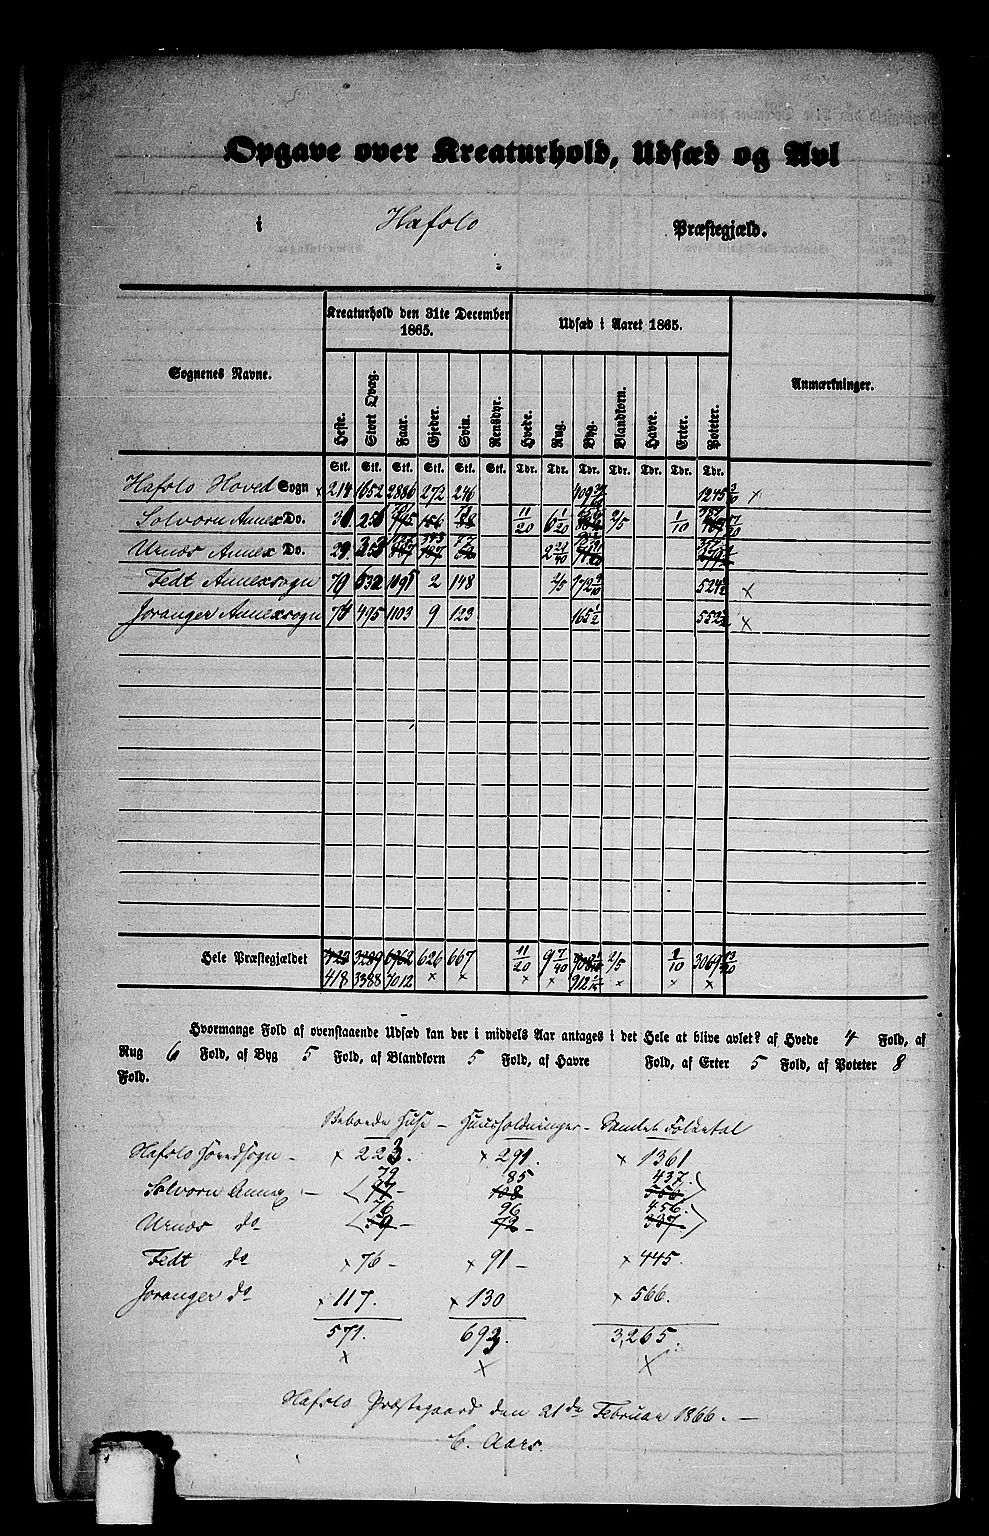 Opgave over Kreaturhold, Udsæd og Avl
i Hafslo Præstegjæld.
Kreaturhold den 31te December 1865.
Udsæd i Aaret 1865.
Sognenes Navne.
Anmærkninger.
Heste. Stort Qvæg. Faar. Gjeder. Sviin. Rensdyr. Hvede. Rug. Byg. Blandkorn. Havre. Erter. Poteter.
Stk. Stk. Stk. Stk. Stk. Stk. Tdr. Tdr. Tdr. Tdr. Tdr. Tdr. Tdr.
Hafslo Hoved Sogn × 214 1652 2886 272 246 1245 ×
Solvorn Annex Do. 11/20 6 1/20 2/5 1/10
Urnæs Annex Do. 29 2 21/40
Fedt Annexsogn 79 632 1091 2 148 2/5 172 3/10 ×
Joranger Annexsogn 495 1103 9 123 165 1/2 ×
Hele Præstegjældet 423 3289 6962 626 667 11/20 9 7/40 2/5 2/10 3069
418 3388 7012 × × × × 912 × × ×
Hvormange Fold af ovenstaaende Udsæd kan der i middels Aar antages i det Hele at blive avlet? af Hvede 4 Fold, af
Rug 6 Fold, af Byg 5 Fold, af Blandkorn 5 Fold, af Havre Fold, af Erter 5 Fold, af Poteter 8
Fold.
Beboede Huse – Huusholdninger – Samlet Folketal
Hafslo Hovedsogn – × 223. × 291. × 1361
79 85 437.
Solvorn Annex – 77 – 108 550
76 96 456.
Urnæs do 59 – 72 – 337
Fedt do × 76 – × 91 – × 445.
Joranger do × 117. × 130 × 566.
571. 693. 3,265.
× × ×
Hafslo Præstegaard den 21de Februar 1866. –
C. Aars.